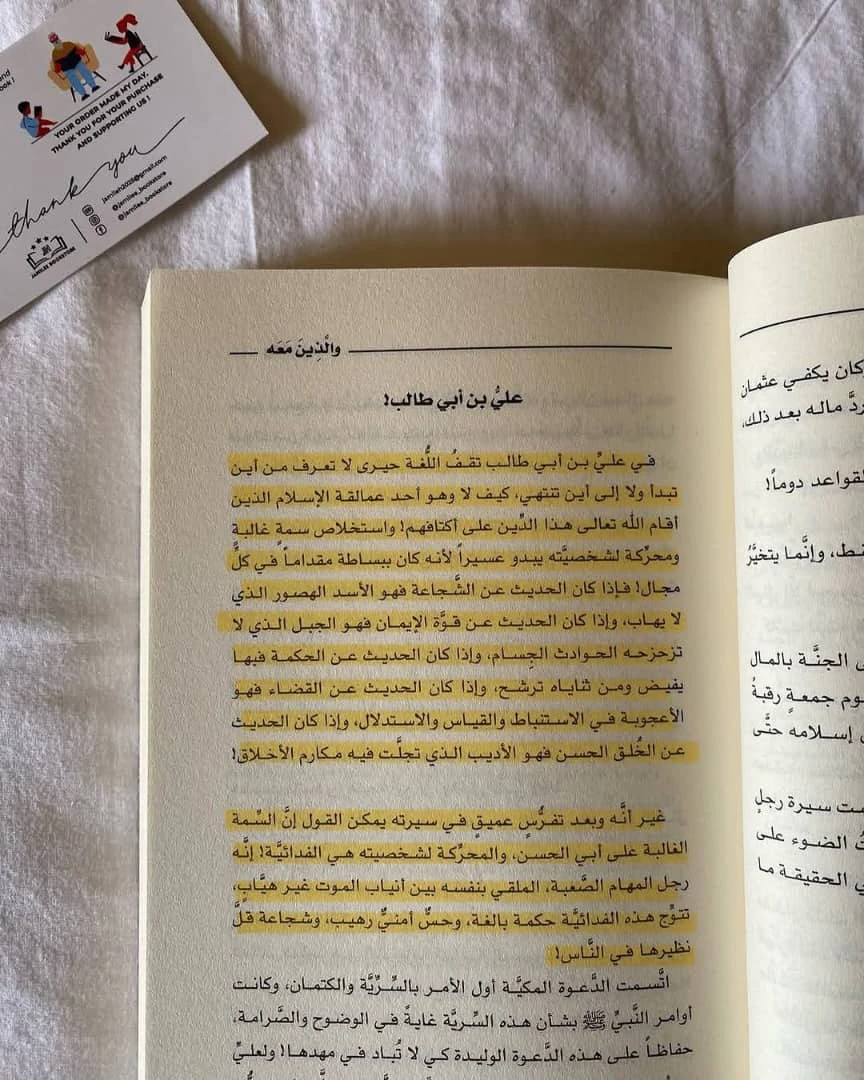 YOUR ORDER MADE MY DAY.
THANK YOU FOR YOUR PURCHASE
AND SUPPORTING US !
thank you
jamilah2025@gmail.com
@jamilee_bookstore
@jamilee_bookstore
JAMILEE BOOKSTORE
والَّذِينَ مَعَه
عليُّ بن أبي طالب!
في عليِّ بن أبي طالب تقفُ اللُّغة حيرى لا تعرف من أين
تبدأ ولا إلى أين تنتهي، كيف لا وهو أحد عمالقة الإسلام الذين
أقام الله تعالى هذا الدِّين على أكتافهم! واستخلاص سمةٍ غالبةٍ
ومحرِّكة لشخصيَّته يبدو عسيراً لأنه كان ببساطة مقداماً في كلِّ
مجال! فإذا كان الحديث عن الشَّجاعة فهو الأسد الهصور الذي
لا يهاب، وإذا كان الحديث عن قوَّة الإيمان فهو الجبل الذي لا
تزحزحه الحوادث الجِسام، وإذا كان الحديث عن الحكمة فبها
يفيض ومن ثناياه ترشح، وإذا كان الحديث عن القضاء فهو
الأعجوبة في الاستنباط والقياس والاستدلال، وإذا كان الحديث
عن الخُلق الحسن فهو الأديب الذي تجلَّت فيه مكارم الأخلاق!
غير أنَّه وبعد تفرُّسٍ عميقٍ في سيرته يمكن القول إنَّ السِّمة
الغالبة على أبي الحسن، والمحرِّكة لشخصيته هي الفدائيَّة! إنَّه
رجل المهام الصَّعبة، الملقي بنفسه بين أنياب الموت غير هيَّابٍ،
تتوِّج هذه الفدائيَّة حكمة بالغة، وحسٌّ أمنيٌّ رهيب، وشجاعة قلَّ
نظيرها في النَّاس!
اتَّسمت الدَّعوة المكيَّة أول الأمر بالسِّرِّيَّة والكتمان، وكانت
أوامر النَّبيِّ ﷺ بشأن هذه السِّريَّة غايةً في الوضوح والصَّرامة،
حفاظاً على هذه الدَّعوة الوليدة كي لا تُباد في مهدها! ولعليِّ
كان يكفي عثمان
ردَّ ماله بعد ذلك،
لقواعد دوماً!
وإنَّما يتخيَّرُ
الجنَّة بالمال
جمعةٍ رقبةً
إسلامه حتَّى
سيرة رجلٍ
الضوء على
الحقيقة ما